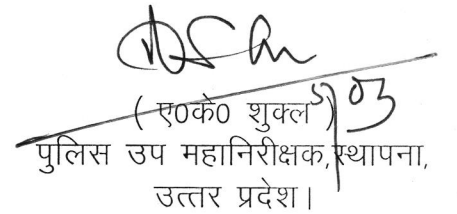 ( ए०के० शुक्ल )
पुलिस उप महानिरीक्षक,स्थापना,
उत्तर प्रदेश।